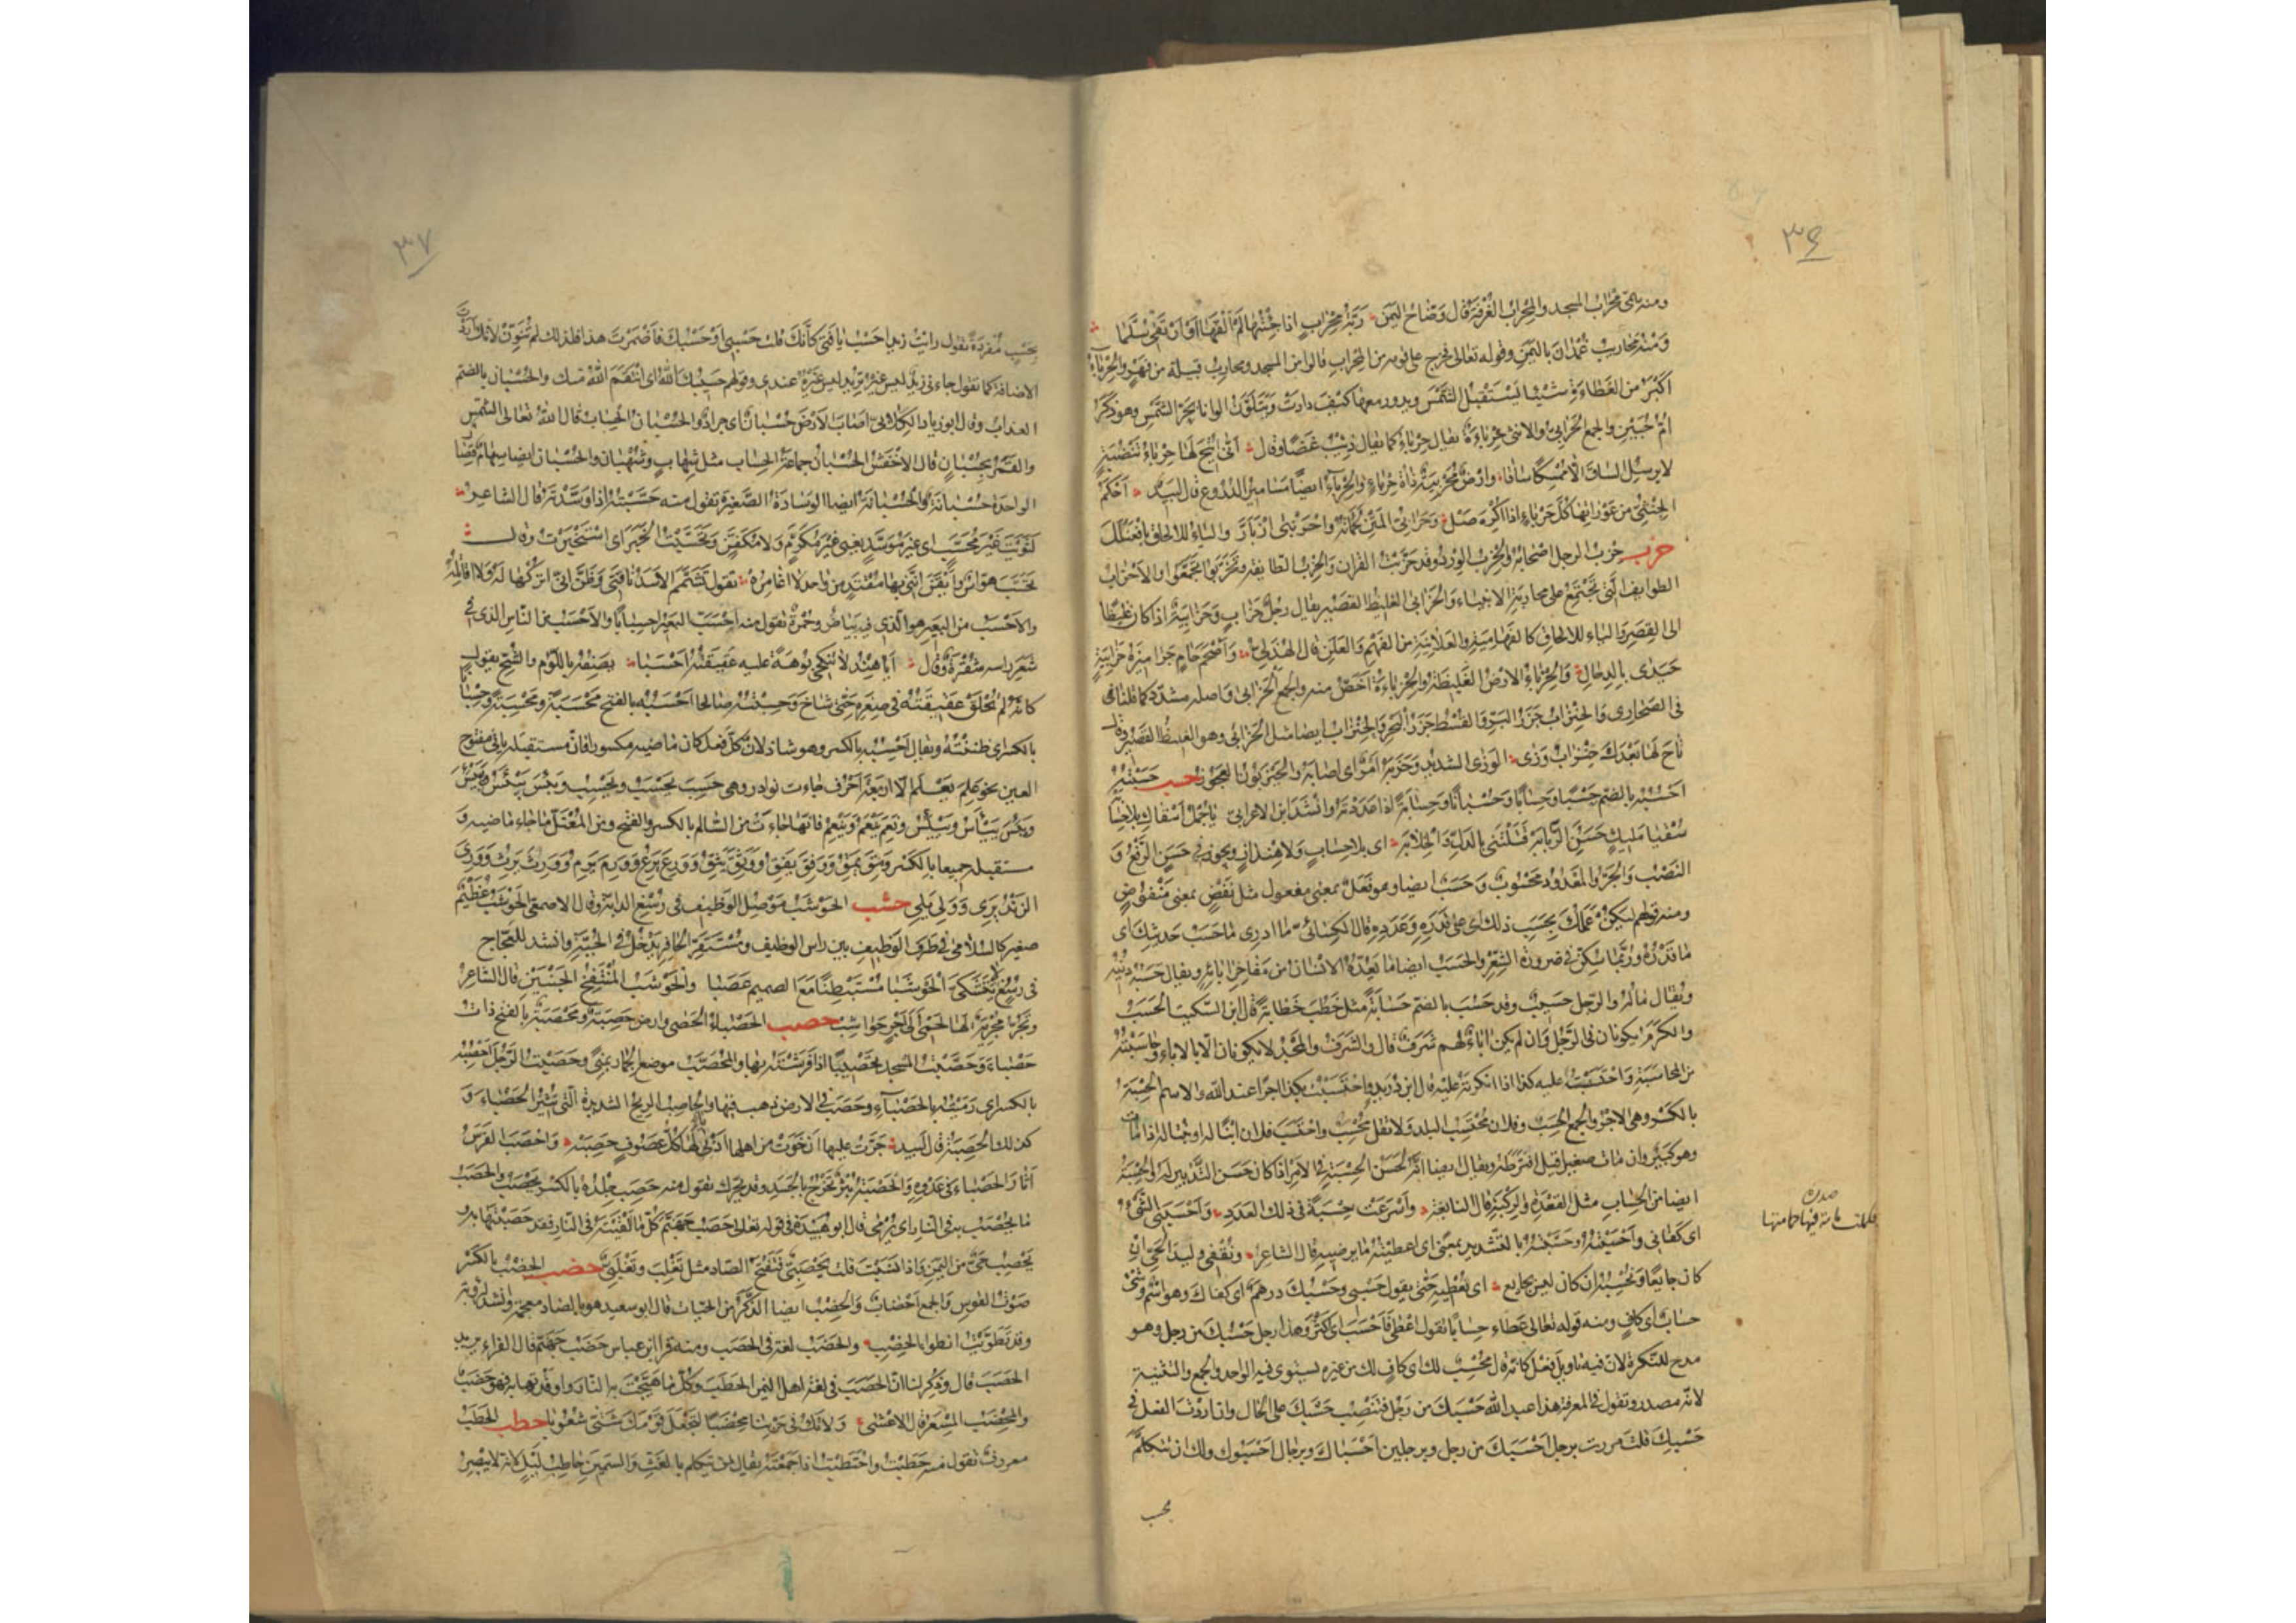 ٣٦
ومنه سمى محراب المسجد والمحراب الغرفة قال وضاح اليمن ربة محراب اذا جئتها لم القها او ارتقى سلما
ومنه محاريب غمدان باليمن وقوله تعالى فخرج على قومه من المحراب قالوا من المسجد ومحارب قبيلة من فهر والحرباء
اكبر من العظاءة شيئا يستقبل الشمس ويدور معها كيف دارت ويتلون الوانا بحر الشمس وهو ذكر
ام حبين والجمع الحرابى والانثى حرباءة يقال حرباء كما يقال ذئب غضا وقال انى اتيح لها حرباء تنضبة
لا يرسل الساق الا ممسكا ساقا وارض محربئة ذات حرباء والحرباء ايضا مسامير الدروع قال لبيد احكم
الجنثى من عوراتها كل حرباء اذا اكره صل وحرابى المتن لحماته واحرنبى ازبأر والياء للالحاق بافعنلل
حزب حزب الرجل اصحابه والحزب الورد وقد حزبت القران والحزب الطايفة وتحزبوا تجمعوا والاحزاب
الطوايف التى تجتمع على محاربة الانبياء والحزابى الغليظ القصير يقال رجل حزاب وحزابية اذا كان غليظا
الى القصر والياء للالحاق كالفهامية والعلانية من الفهم والعلن قال الهذلى واصحم حام جراميزه حزابية
حيدى بالدحال والحزباء الارض الغليظة والحزباءة اخص منه والجمع الحزابى واصله مشدد كما قلنا فى
فى الصحارى والحنزاب جزر البر والقسط جزر البحر والحنزاب ايضا مثل الحزابى وهو الغليظ القصير وقال
تاح لها بعدك حنزاب وزى الوزى الشديد وحزبه امر اى اصابه والحيزبون العجوز حسب حسبته
احسبه بالضم حسبا وحسابا وحسبانا وحسابة اذا عددته وانشد ابن الاعرابى يا جمل اسقاك بلا حسابه
سقيا مليك حسن الربابه قتلتنى بالدل والخلابه اى بلا حساب ولا هنداز ويجوز فى حسن الرفع و
النصب والجر والمعدود محسوب وحسب ايضا وهو فعل بمعنى مفعول مثل نفض بمعنى منفوض
ومنه قولهم ليكن عملك بحسب ذلك اى على قدره وعدده قال الكسائى ما ادرى ما حسب حديثك اى
ما قدره وربما سكن فى ضرورة الشعر والحسب ايضا ما يعده الانسان من مفاخر ابائه ويقال حسبه دينه
ويقال ماله والرجل حسيب وقد حسب بالضم حسابة مثل خطب خطابة قال ابن السكيت الحسب
والكرم يكونان فى الرجل وان لم يكن اباء لهم شرف قال والشرف والمجد لا يكونان الا بالاباء وحاسبته
من المحاسبة واحتسبت عليه كذا اذا انكرته عليه قال ابن دريد واحتسبت بكذا اجرا عند الله والاسم الحسبة
بالكسر وهى الاجر والجمع الحسب وفلان محتسب البلد ولا تقل محسب واحتسب فلان ابنا له او بنتا له اذا مات
وهو كبير وان مات صغير قيل افترطه ويقال ايضا انه لحسن الحسبة فى الامر اذا كان حسن التدبير له والحسبة
ايضا من الحساب مثل القعدة والركبة قال النابغة واسرعت حسبة فى ذلك العدد واحسبنى الشىء
اى كفانى واحسبته وحسبته بالتشديد بمعنى اى اعطيته ما يرضيه قال الشاعر ونقفى وليد الحى ان
كان جايعا ونحسبه ان كان ليس بجايع اى نعطيه حتى يقول حسبى وحسبك درهم اى كفاك وهو اسم وشىء
حساب اى كاف ومنه قوله تعالى عطاء حسابا تقول اعطى فاحسب اى اكثر وهذا رجل حسبك من رجل وهو
مدح للنكرة لان فيه تاويل فعل كانه قال محسب لك اى كاف لك من غيره يستوى فيه الواحد والجمع والتثنية
لانه مصدر وتقول فى المعرفة هذا عبد الله حسبك من رجل فتنصب حسبك على الحال وان اردت الفعل فى
حسبك قلت مررت برجل احسبك من رجل وبرجلين احسباك وبرجال احسبوك ولك ان تتكلم
بحسب
صدره
فكملت مائة فيها حمامتها
٣٧
بحسب مفردة تقول رايت زيدا حسب يا فتى كأنك قلت حسبى او حسبك فاضمرت هذا فلذلك لم تنون لانك اردت
الاضافة كما تقول جاءنى زيد ليس غير تريد ليس غيره عندى وقولهم حسيبك الله اى انتقم الله منك والحسبان بالضم
العذاب وقال ابو زياد الكلابى اصاب الارض حسبان اى جراد والحسبان الحساب قال الله تعالى الشمس
والقمر بحسبان قال الاخفش الحسبان جماعة الحساب مثل شهاب وشهبان والحسبان ايضا سهام قصار
الواحدة حسبانة والحسبانة ايضا الوسادة الصغيرة تقول منه حسبته اذا وسدته قال الشاعر
لثويت غير محسب اى غير موسد يعنى غير مكرم ولا مكفن وتحسبت الخبر اى استخبرت وقال
تحسب هواس وايقن اننى بها مفتد من واحد لا اغامره تقول تشمم الاسد ناقتى وظن انى اتركها له ولا اقاتله
والاحسب من البعير هو الذى فيه بياض وحمرة تقول منه احسب البعير احسبابا والاحسب من الناس الذى فى
شعر راسه شقرة وقال ايا هند لا تنكحى بوهة عليه عقيقته احسبا يصفه باللؤم والشح يقول
كانه لم تحلق عقيقته فى صغره حتى شاخ وحسبته صالحا احسبه بالفتح محسبة ومحسبة وحسبانا
بالكسر اى ظننته ويقال احسبه بالكسر وهو شاذ لان كل فعل كان ماضيه مكسورا فان مستقبله ياتى مفتوح
العين نحو علم يعلم الا اربعة احرف جاءت نوادر وهى حسب يحسب ويحسب ويبس ييبس وييبس
ويئس ييأس وييئس ونعم ينعم وينعم فانها جاءت من السالم بالكسر والفتح ومن المعتل ما جاء ماضيه و
مستقبله جميعا بالكسر ومق يمق ووفق يفق ووثق يثق وورع يرع وورم يرم وورث يرث وورى
الزند يرى وولى يلى حشب الحوشب موصل الوظيف فى رسغ الدابة وقال الاصمعى الحوشب عظيم
صغير كالسلامى فى طرف الوظيف بين راس الوظيف ومستقر الحافر يدخل فى الجبة وانشد للعجاج
فى رسغ لا يتشكى الحوشبا مستبطنا مع الصميم عصبا والحوشب المنتفخ الجنبين قال الشاعر
وتجر مجرية لها لحمى الى اجر حواشب حصب الحصباء الحصى وارض حصبة ومحصبة بالفتح ذات
حصباء وحصبت المسجد تحصيبا اذا فرشته بها والمحصب موضع الجمار بمنى وحصبت الرجل احصبه
بالكسر اى رميته بالحصباء وحصب فى الارض ذهب فيها والحاصب الريح الشديدة التى تثير الحصباء و
كذلك الحصبة قال لبيد جرت عليها ان خوت من اهلها اذيالها كل عصوف حصبه واحصب الفرس
اثار الحصباء فى عدوه والحصبة بثر تخرج بالجسد وقد يحرك تقول منه حصب جلده بالكسر يحصب والحصب
ما يحصب به فى النار اى يرمى قال ابو عبيدة فى قوله تعالى حصب جهنم كل ما القيته فى النار فقد حصبتها به و
يحصب حى من اليمن واذا نسبت قلت يحصبى فتفتح الصاد مثل تغلب وتغلبى حضب الحضب بالكسر
صوت القوس والجمع احضاب والحضب ايضا الذكر من الحيات قال ابو سعيد هو بالضاد معجمة وانشد لرؤبة
وقد تطويت انطواء الحضب والحضب لغة فى الحصب ومنه قرا ابن عباس حضب جهنم قال الفراء يريد
الحصب قال وذكر لنا ان الحضب فى لغة اهل اليمن الحطب وكل ما هيجت به النار او اوقدتها به فهو حضب
والمحضب المسعر قال الاعشى ولا تك فى حربنا محضبا لتجعل قومك شتى شعوبا حطب الحطب
معروف تقول منه حطبت واحتطبت اذا جمعته يقال لمن تكلم بالغث والسمين حاطب ليل لانه لا يبصر